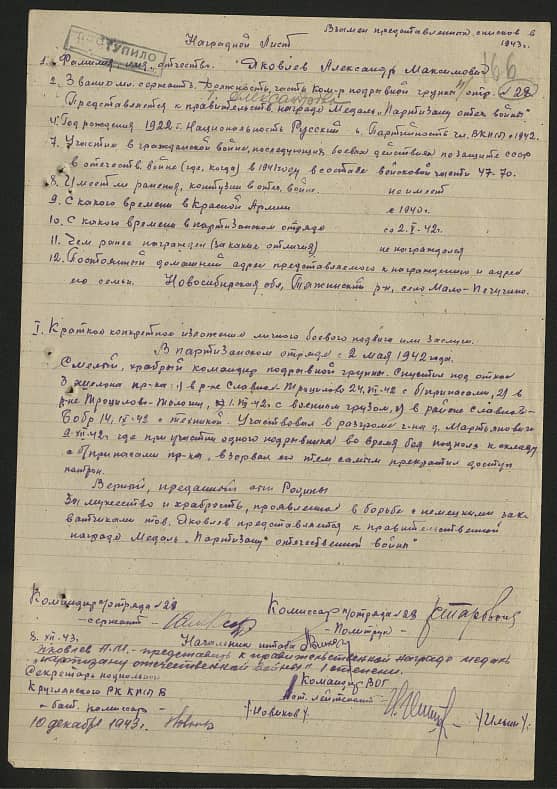 Взамен представленных списков в
1943г.
ПОСТУПИЛО
Наградной Лист
166
1. Фамилия, имя, отчество. Яковлев Александр Максимович
2. Звание мл. сержант 3. Должность, часть ком-р подрывной группы п/отр. №28
Представляется к правительств. награде Медаль "Партизану отеч. войны"
4. Год рождения 1922 г. Национальность Русский 6. Партийность чл. ВКП/б/ с 1942
7. Участие в гражданской войне, последующих боевых действиях по защите СССР
в отечеств. войне (где, когда) в 1941 году в составе войсковой части 47-70.
8. Имеет ли ранения, контузии в отеч. войне. не имеет
9. С какого времени в Красной Армии с 1940г.
10. С какого времени в партизанском отряде со 2.V-42г.
11. Чем ранее награжден (за какие отличия) не награждался
12. Постоянный домашний адрес представляемого к награждению и адрес
его семьи. Новосибирская обл, Тяжинский р-н, село Мало-Пичугино.
I. Краткое конкретное изложение личного боевого подвига или заслуги.
В партизанском отряде с 2 мая 1942 года.
Смелый, храбрый командир подрывной группы. Спустил под откос
3 эшелона пр-ка: 1) в р-не Славное-Троцилово 24. -42г с б/припасами, 2) в
р-не Троцилово-Толочин, 1. -42г. с военным грузом, 3) в районе Славное-
Бобр 14. -42г с техникой. Участвовал в разгроме г-на д.
9-XII-42г. где при участии одного подрывника во время боя подполз к складу
с б/припасами пр-ка, взорвал его тем самым прекратил доступ
патрон.
Верный, преданный сын Родины
За мужество и храбрость, проявленные в борьбе с немецкими зах-
ватчиками тов. Яковлев представляется к правительственной
награде Медаль "Партизану отечественной войны"
Командир п/отряда №28
- сержант -
Комиссар п/отряда №28
- Политрук -
8. XII-43. Начальник штаба
Яковлев А.М. - представить к правительственной награде медаль
"партизану отечественной войны" I степени.
Секретарь подпольного
Круглянского РК КП/б/Б
- бат. комиссар -
/Новиков/.
10 декабря 1943г.
Командир ВОГ
ст. лейтенант
/Ильин/.